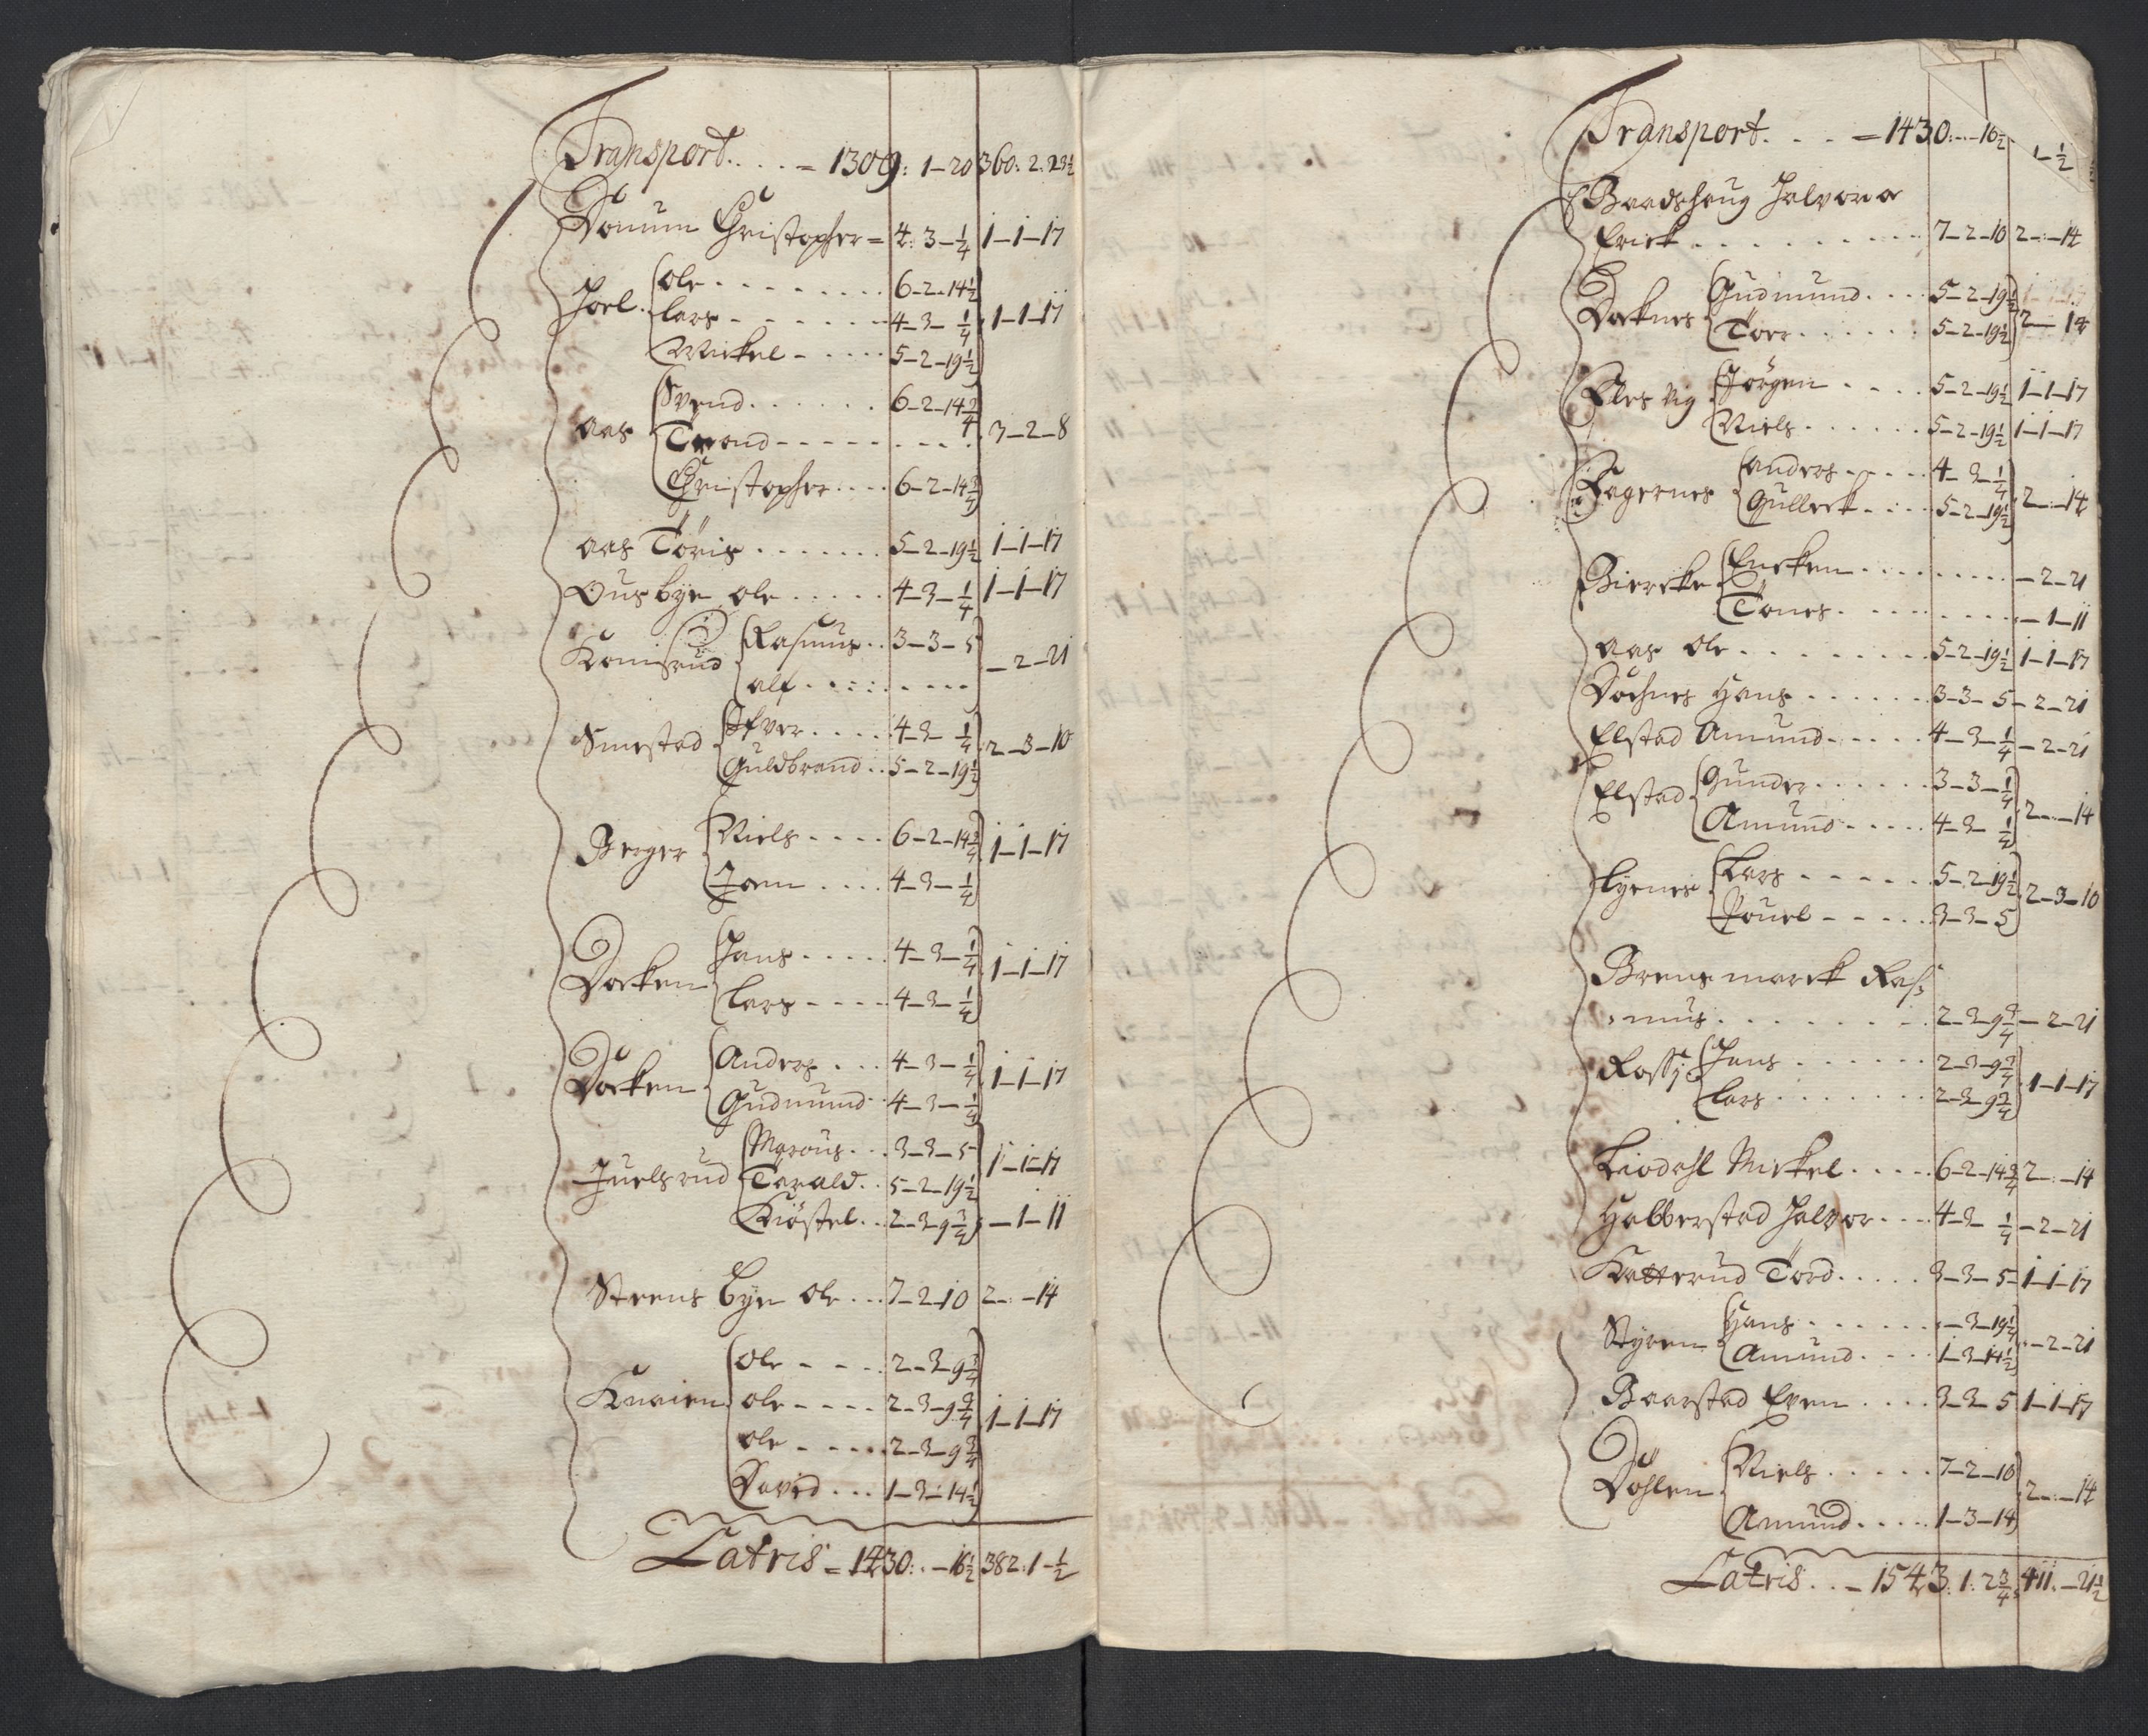 Transport. . . . = 1309: 1–20 360: 2: 23½
Donum Christopher = 4: 3–¼ 1–1–17
Hoel Ole 6–2–14½
Lars 4–3 ¼ 1–1–17
Mickel 5–2–19½
Aas Svend 6–2–14¾
Trond 3–2–8
Christopher 6–2–14¾
Aas Töris 5–2–19½ 1–1–17
Ousbye Ole 4–3–¼ 1–1–17
Konisrud Rasmus 3–3–5 –2–21
Alf
Smestad Ifver 4–3 ¼ 2–3–10
Guldbrand 5–2–19½
Berger Niels 6–2–14¾ 1–1–17
Joen 4–3–¼
Docken Hans 4–3–¼ 1–1–17
Lars 4–3 ¼
Docken Anders 4–3–¼ 1–1–17
Gudmund 4–3–¼
Juelsrud Marcus 3–3–5 1–1–17
Tarald 5–2–19½
Kiöstel 2–3–9¾ –1–11
Steensbye Ole 7–2–10 2–:–14
Knaien Ole 2–3–9¾
Ole 2–3–9¾ 1–1–17
Ole 2–3–9¾
David 1–3–14½
Latris = 1430: . –16½ 382: 1–½
Transport. . . . = 1430: –16½ 1–½
Baadshaug Halvor o
Erick 7–2–10 2–:–14
Docknes Gudmund 5–2–19½
Torr 5–2–19½ 2–:–14
Elesvig Jörgen 5–2–19½ 1–1–17
Niels 5–2–19½ 1–1–17
Fagernes Anders 4–3–¼ 2–:–14
Gullerk 5–2–19½
Biercke Encken –2–21
Tönes –1–11
Aas Ole 5–2–19½ 1–1–17
Döchnes Hans 3–3–5 –2–21
Elstad Amund 4–3–¼ –2–21
Elstad Gunder 3–3–¼ 2–:–14
Amund 4–3 ¼
Lyenes Lars 5–2–19½ 2–3–10
Pouel 3–3–5
Brensmarck Ras-
mus 2–3–9¾ –2–21
Hans 2–3–9¾ 1–1–17
Lars 2–3–9¾
Liodahl Mickel 6–2–14¾ 2–:–14
Habberstad Halvor 4–3 ¼ –2–21
Katterud Tord 3–3–5 1–1–17
Styren Hans –3–19¼ –2–21
Amund 1–3–14½
Baarstad Even 3–3–5 1–1–17
Döhlen Niels 7–2–10 2–:–14
Amund 1–3–14
Latris . . = 1543: 1: 2¾ 411. –21½